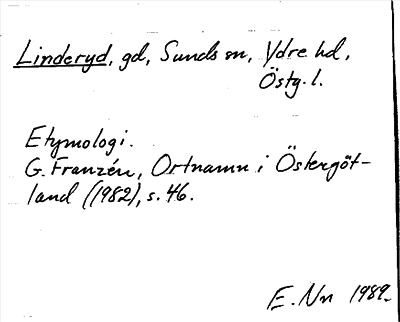 Linderyd, gd, Sunds sn, Ydre hd,
Östg. l.
Etymologi.
G. Franzén, Ortnamn i Östergöt-
land (1982), s. 46.
E. Nn 1989